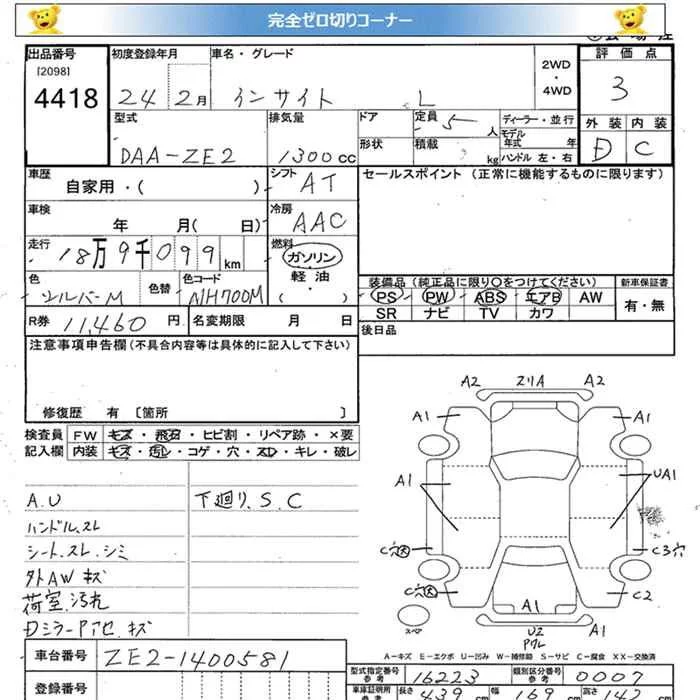 完全ゼロ切りコーナー
出品番号 初度登録年月 車名・グレード 2WD・4WD 評価点
[2098]
4418 24 2月 インサイト L 3
型式 排気量 ドア 定員 5 人 ディーラー・並行 外装 内装
モデル年式 年
DAA-ZE2 1300cc 形状 積載 kg ハンドル 左・右 D C
車歴 シフト セールスポイント (正常に機能するものに限ります)
自家用・( ) AT
車検 冷房
年 月( 日) AAC
走行 燃料
18万9千099km ガソリン
軽油
( )
色 色替 色コード 装備品(純正品に限り○をつけてください) 新車保証書
シルバーM NH700M PS PW ABS エアB AW 有・無
SR ナビ TV カワ
R券 11,460 円 名変期限 月 日 後日品
注意事項申告欄(不具合内容等は具体的に記入して下さい)
修復歴 有 〔箇所 〕
検査員 FW キズ・飛石・ヒビ割・リペア跡・×要
記入欄 内装 キズ・汚レ・コゲ・穴・スレ・キレ・破レ
A.U 下廻り.S.C
ハンドル.スレ
シート.スレ.シミ
外AW キズ
荷室.汚れ
Dミラー
キズ
A2 スリA A2
A1 A1
A1 UA1
C穴大 C3穴
C穴大 C2
A1
スペア U2 A1
A−キズ E−エクボ U−凹み W−補修跡 S−サビ C−腐食 XX−交換済
車台番号 ZE2-1400581
型式指定番号 参考 16223 類別区分番号 参考 0007
登録番号 車庫証明用 参考 長さ 439 cm 幅 169 cm 高さ 142 cm